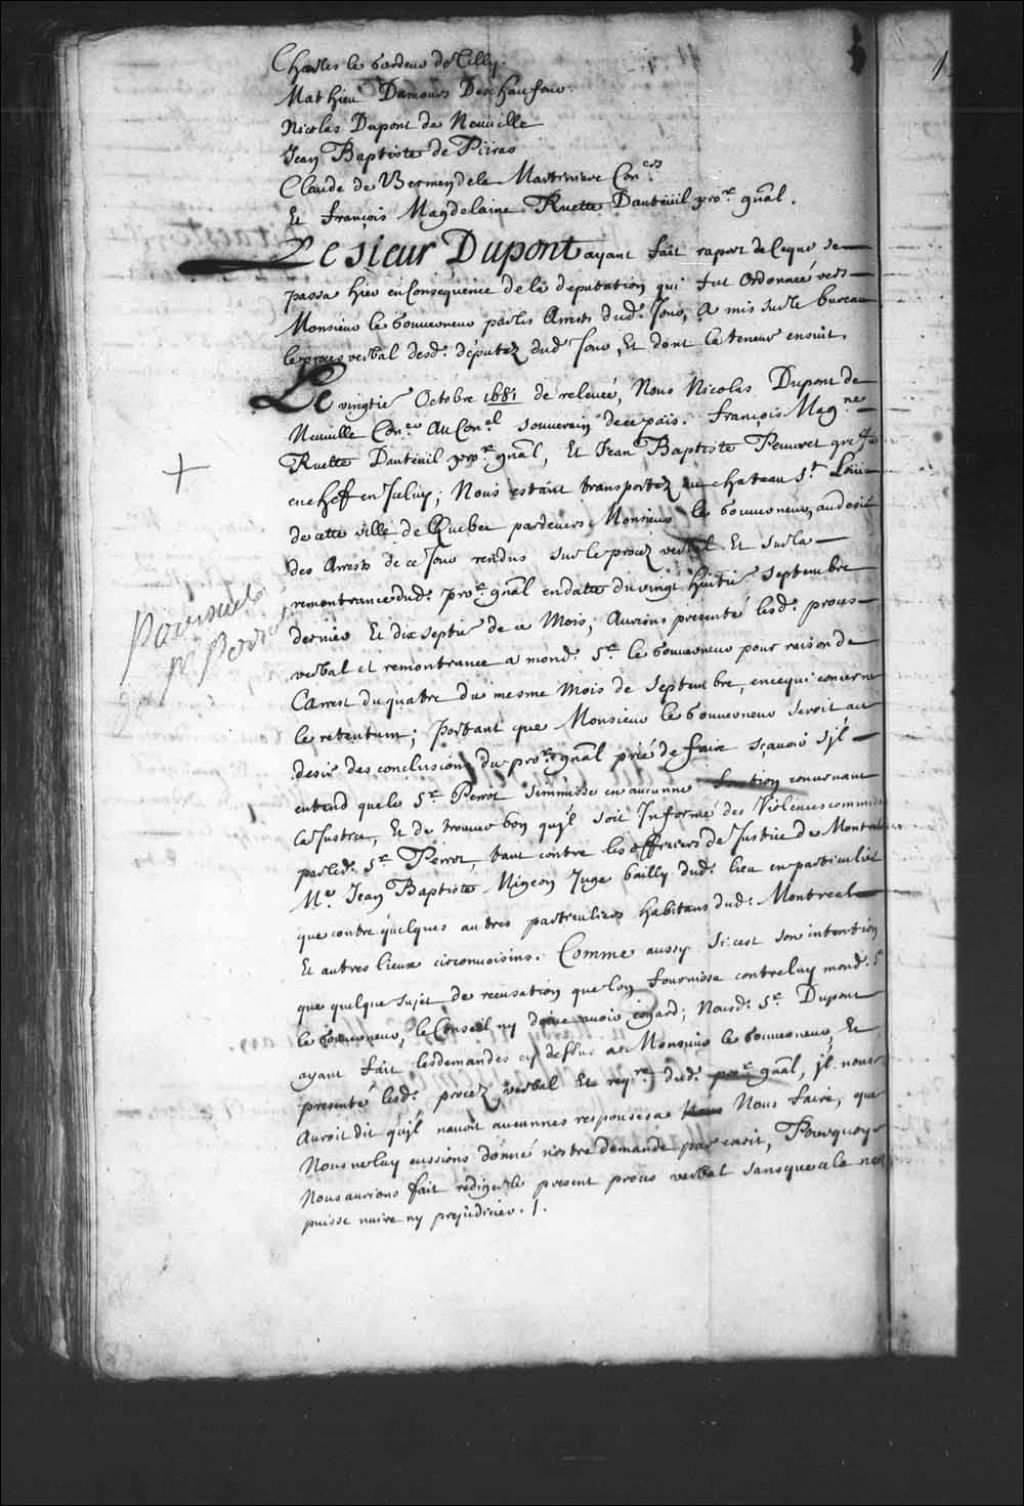 Charles le Gardeur de Tilly.
Mathieu Damours Deschaufour.
Nicolas Dupont de Neuuille
Jean Baptiste de Peiras
Claude de Bermen de la Martiniere Con.ers
Et françois Magdelaine Ruette Dauteüil pro.r gñal.
Le sieur Dupont ayant fait raport de Ce qui se
passa hier en Consequence de la deputation qui fut Ordonnée vers
Monsieur le Gouuerneur par les Arrests dud. Jour, a mis sur le bureau
le proces verbal desd. députez dud Jour, Et dont la teneur ensuit.
Le vingtie Octobre 1681 de releueé, Nous Nicolas Dupont de
Neuuille Con.er Au Con.el souuerain de ce païs. françois Mag.ne
Ruette Dauteüil pro.r gñal, Et Jean Baptiste Peuuret greffier
en cheff en Jceluy; Nous estant transportez au chateau S.t Loüis
de cette ville de Quebec pardeuers Monsieur le Gouuerneur, au desir
des Arrests de ce Jour rendus sur le procez verbal Et sur la
remontrance dud. pro.r gñal en datte du vingt huitie septembre
dernier Et dix septie de ce Mois, Aurions presenté lesd. proces
verbal et remontrance a mond. S.r le Gouuerneur pour raison de
L'arrest du quatre du mesme Mois de septembre, en ce qui concerne
le retentum; portant que Monsieur le Gouuerneur seroit au
desir des conclusions du pro.r gñal prié de faire sçauoir s'jl
entend que le S.r Perrot s'immisse en aucunne fonction concernant
la Justice, Et de trouuer bon qu'jl soit Jnformé des Violences commises
par led. S.r Perrot, tant contre les officiers de Justice de Montreal
M.e Jean Baptiste Migeon Juge bailly dud. lieu en particulier
que contre quelques autres particuliers habitans dud. Montreal
Et autres lieux circonuoisins. Comme aussy si cest son intention
que quelque sujet de recusation que lon fournisse contre luy mond. S.r
le Gouuerneur, le Conseil ny doiue auoir egard; Nousd. S.r Dupont
ayant fait les demandes cy dessus a Monsieur le Gouuerneur, Et
presenté lesd. procez verbal Et req.re dud. pro.r gñal, jl nous
Auroit dit qu'jl nauoit aucunnes responses a Nous faire, que
Nous ne luy eussions donné nostre demande par escrit, Pourquoy
Nous aurions fait rediger le present proces verbal sans que cela
puisse nuire ny prejudicier. /.
Poursuite
p.r Perrot